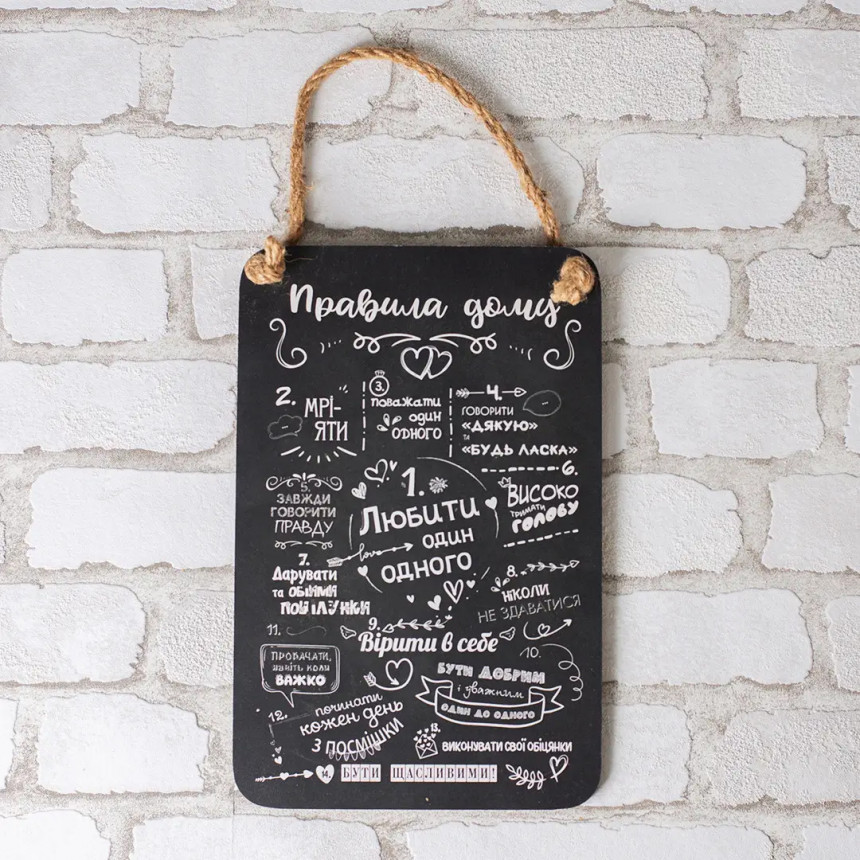 Правила дому
2. МРІ-
ЯТИ
3.
поважати
один
одного
4.
говорити
«дякую»
та
«будь ласка»
1.
Любити
один
одного
5.
завжди
говорити
правду
6.
Високо
тримати
голову
7.
Дарувати
та обійми
поцілунки
love
8.
ніколи
не здаватися
9.
Вірити в себе
10.
бути добрим
і уважним
один до одного
11.
пробачати,
навіть коли
важко
12.
починати
кожен день
з посмішки
13.
виконувати свої обіцянки
14.
бути щасливими!